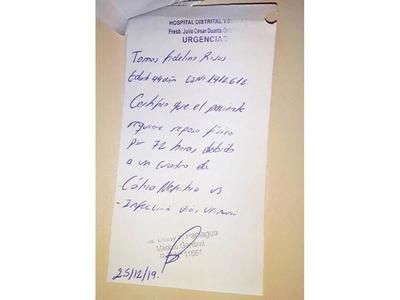 HOSPITAL DISTRITAL
Presb. Julio Cesar Duarte
URGENCIAS
Tomas Fidelino Rojas
Edad 44 años
Certifico que el paciente
requiere reposo físico
por 72 horas debido
a un cuadro de
Cólico Nefrítico vs
- Infección vías urinaria
Paniagua
Médico General
11561
25/12/19.